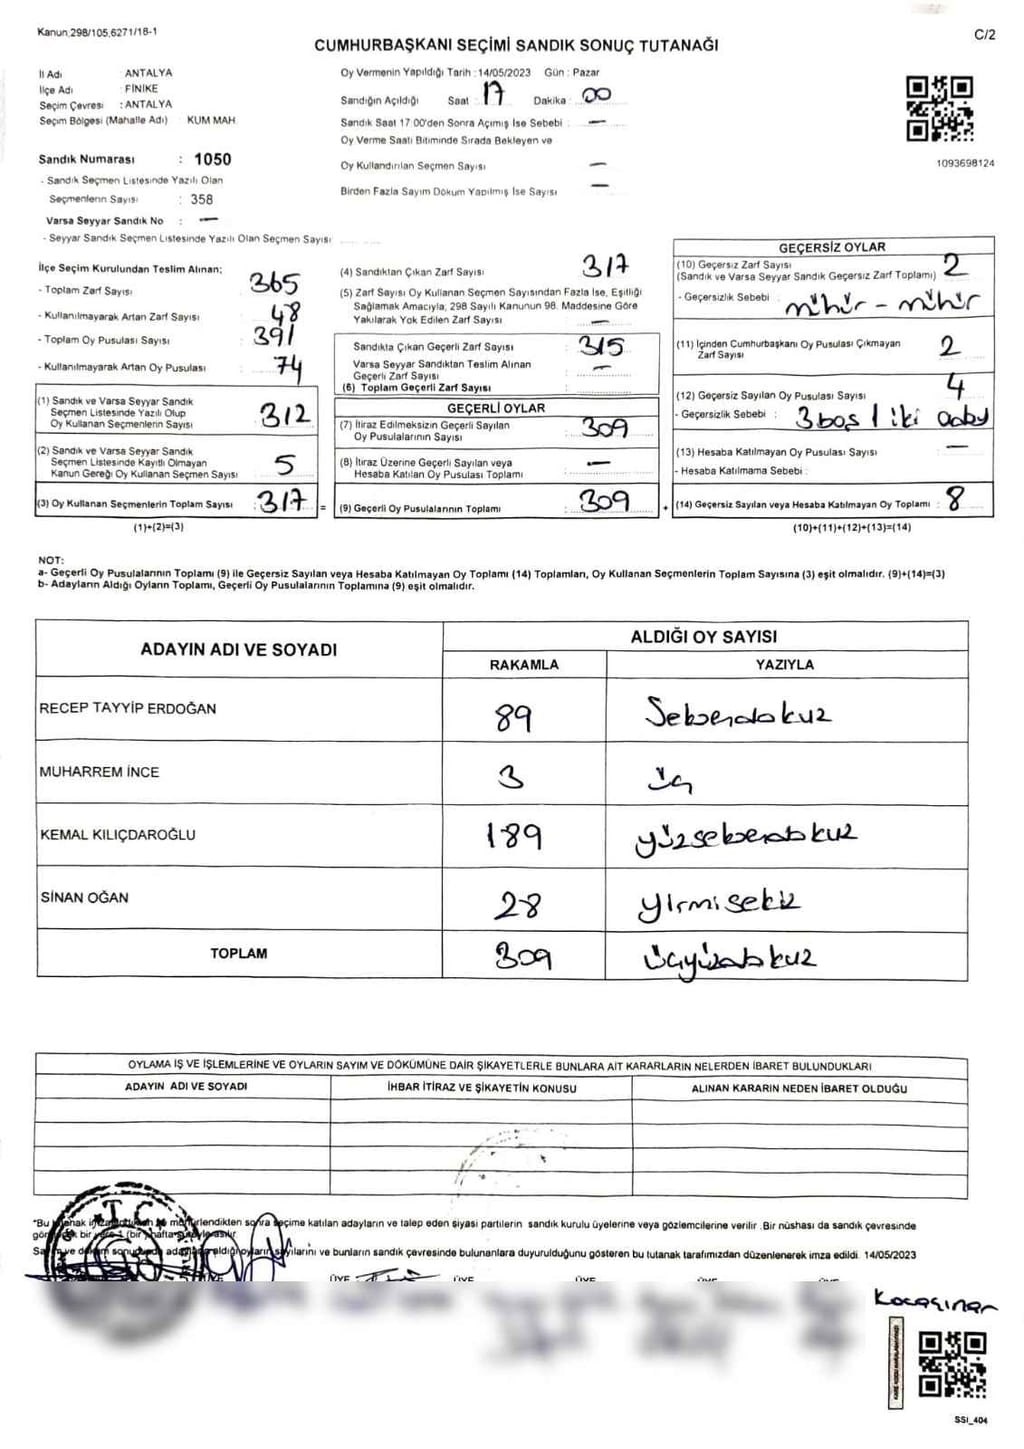 Kanun:298/105,6271/18-1
C/2
CUMHURBAŞKANI SEÇİMİ SANDIK SONUÇ TUTANAĞI
İl Adı : ANTALYA
İlçe Adı : FİNİKE
Seçim Çevresi : ANTALYA
Seçim Bölgesi (Mahalle Adı) KUM MAH.
Sandık Numarası : 1050
- Sandık Seçmen Listesinde Yazılı Olan
Seçmenlerin Sayısı : 358
Varsa Seyyar Sandık No : —
- Seyyar Sandık Seçmen Listesinde Yazılı Olan Seçmen Sayısı
Oy Vermenin Yapıldığı Tarih : 14/05/2023 Gün : Pazar
Sandığın Açıldığı Saat : 17 Dakika : 00
Sandık Saat 17:00'den Sonra Açımış İse Sebebi : —
Oy Verme Saati Bitiminde Sırada Bekleyen ve
Oy Kullandırılan Seçmen Sayısı —
Birden Fazla Sayım Döküm Yapılmış İse Sayısı —
1093698124
İlçe Seçim Kurulundan Teslim Alınan;
- Toplam Zarf Sayısı 365
- Kullanılmayarak Artan Zarf Sayısı : 48
- Toplam Oy Pusulası Sayısı : 391
- Kullanılmayarak Artan Oy Pusulası : 74
(1) Sandık ve Varsa Seyyar Sandık
Seçmen Listesinde Yazılı Olup
Oy Kullanan Seçmenlerin Sayısı 312
(2) Sandık ve Varsa Seyyar Sandık
Seçmen Listesinde Kayıtlı Olmayan
Kanun Gereği Oy Kullanan Seçmen Sayısı 5
(3) Oy Kullanan Seçmenlerin Toplam Sayısı : 317 =
(1)+(2)=(3)
(4) Sandıktan Çıkan Zarf Sayısı 317
(5) Zarf Sayısı Oy Kullanan Seçmen Sayısından Fazla İse, Eşitliği
Sağlamak Amacıyla; 298 Sayılı Kanunun 98. Maddesine Göre
Yakılarak Yok Edilen Zarf Sayısı : —
Sandıkta Çıkan Geçerli Zarf Sayısı : 315
Varsa Seyyar Sandıktan Teslim Alınan
Geçerli Zarf Sayısı : —
(6) Toplam Geçerli Zarf Sayısı :
GEÇERLİ OYLAR
(7) İtiraz Edilmeksizin Geçerli Sayılan
Oy Pusulalarının Sayısı : 309
(8) İtiraz Üzerine Geçerli Sayılan veya
Hesaba Katılan Oy Pusulası Toplamı : —
(9) Geçerli Oy Pusulalarının Toplamı : 309 +
GEÇERSİZ OYLAR
(10) Geçersiz Zarf Sayısı
(Sandık ve Varsa Seyyar Sandık Geçersiz Zarf Toplamı) 2
- Geçersizlik Sebebi : mühür - mühür
(11) İçinden Cumhurbaşkanı Oy Pusulası Çıkmayan
Zarf Sayısı 2
(12) Geçersiz Sayılan Oy Pusulası Sayısı 4
- Geçersizlik Sebebi : 3 boş 1 iki aday
(13) Hesaba Katılmayan Oy Pusulası Sayısı —
- Hesaba Katılmama Sebebi :
(14) Geçersiz Sayılan veya Hesaba Katılmayan Oy Toplamı : 8
(10)+(11)+(12)+(13)=(14)
NOT:
a- Geçerli Oy Pusulalarının Toplamı (9) ile Geçersiz Sayılan veya Hesaba Katılmayan Oy Toplamı (14) Toplamları, Oy Kullanan Seçmenlerin Toplam Sayısına (3) eşit olmalıdır. (9)+(14)=(3)
b- Adayların Aldığı Oyların Toplamı, Geçerli Oy Pusulalarının Toplamına (9) eşit olmalıdır.
ADAYIN ADI VE SOYADI
ALDIĞI OY SAYISI
RAKAMLA YAZIYLA
RECEP TAYYİP ERDOĞAN 89 Seksendokuz
MUHARREM İNCE 3 üç
KEMAL KILIÇDAROĞLU 189 yüzseksendokuz
SİNAN OĞAN 28 yirmisekiz
TOPLAM 309 üçyüzdokuz
OYLAMA İŞ VE İŞLEMLERİNE VE OYLARIN SAYIM VE DÖKÜMÜNE DAİR ŞİKAYETLERLE BUNLARA AİT KARARLARIN NELERDEN İBARET BULUNDUKLARI
ADAYIN ADI VE SOYADI İHBAR İTİRAZ VE ŞİKAYETİN KONUSU ALINAN KARARIN NEDEN İBARET OLDUĞU
"Bu sonra seçime katılan adayların ve talep eden siyasi partilerin sandık kurulu üyelerine veya gözlemcilerine verilir .Bir nüshası da sandık çevresinde
ve bunların sandık çevresinde bulunanlara duyurulduğunu gösteren bu tutanak tarafımızdan düzenlenerek imza edildi. 14/05/2023
T.C.
ÜYE ÜYE ÜYE
SSI_404